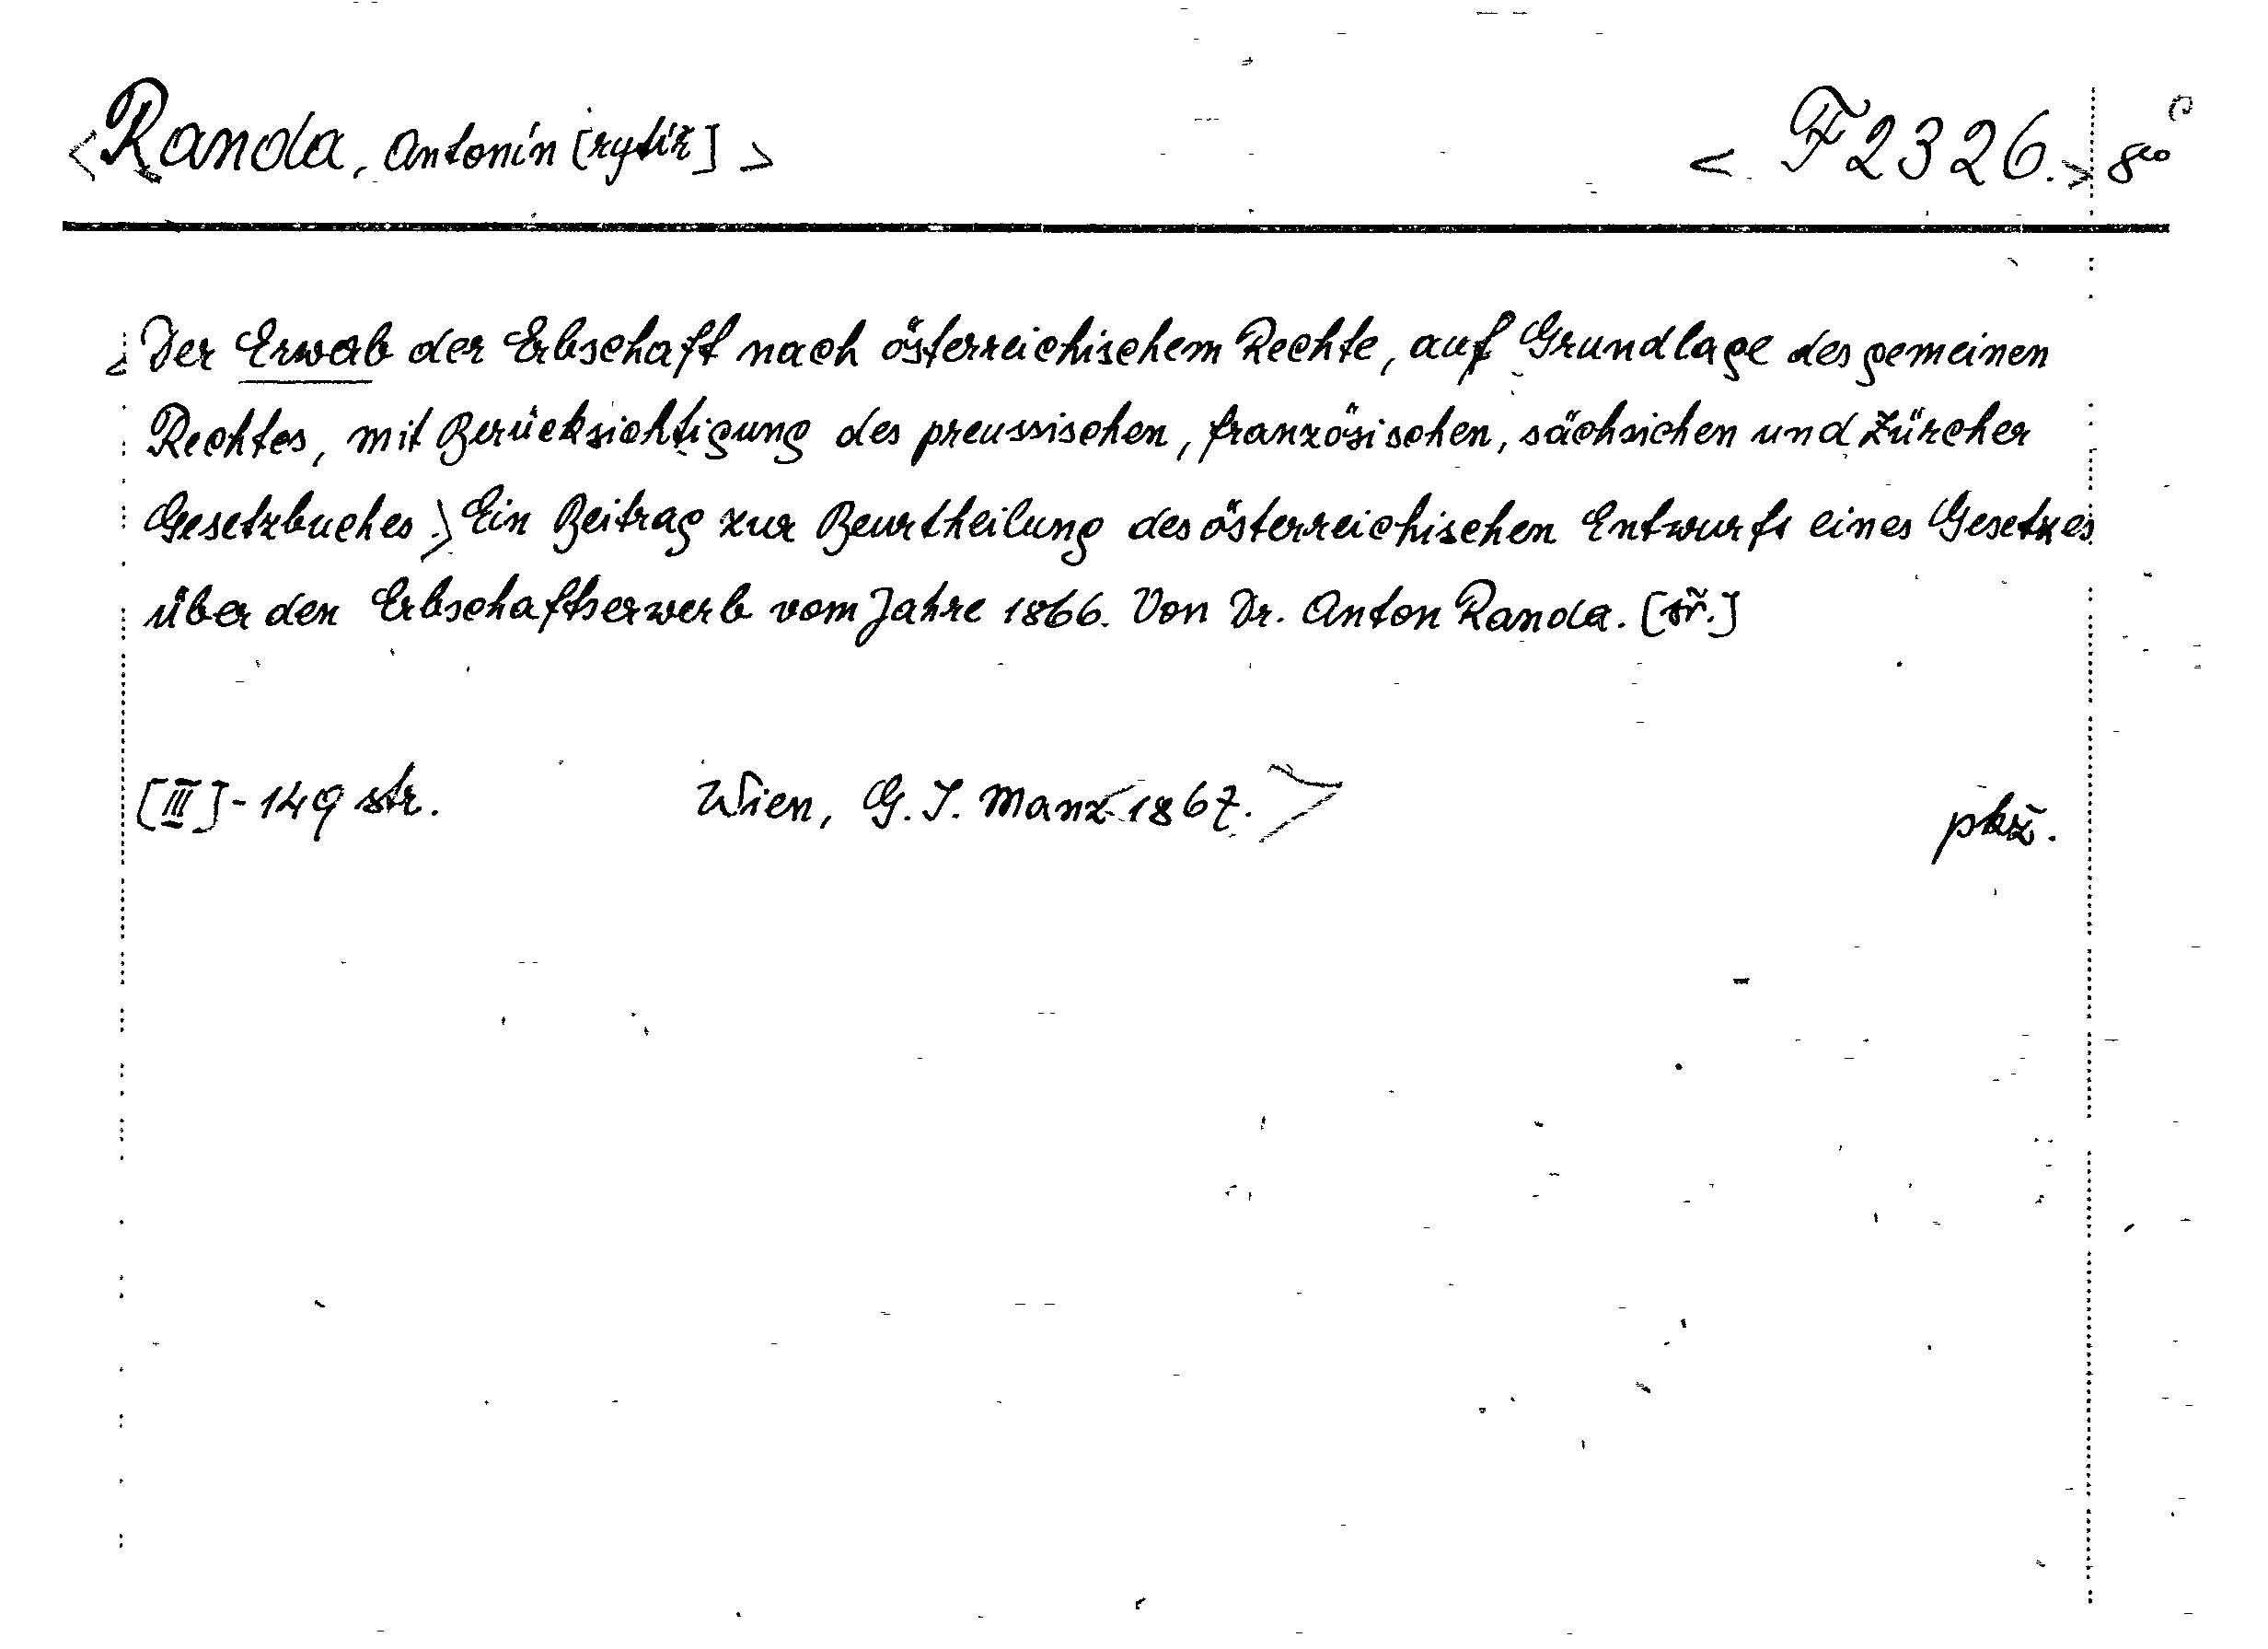 <Randa, Antonín [rytíř]> <F 2326.> 8⁰
<Der Erwerb der Erbschaft nach österreichischem Rechte, auf Grundlage des gemeinen
Rechtes, mit Berücksichtigung des preussischen, französischen, sächsichen und Zürcher
Gesetzbuches.> Ein Beitrag zur Beurtheilung des österreichischen Entwurfs eines Gesetzes
über den Erbschaftserwerb vom Jahre 1866. Von Dr. Anton Randa.
[III]-149 str. Wien, G. J. Manz 1867.> pkž.